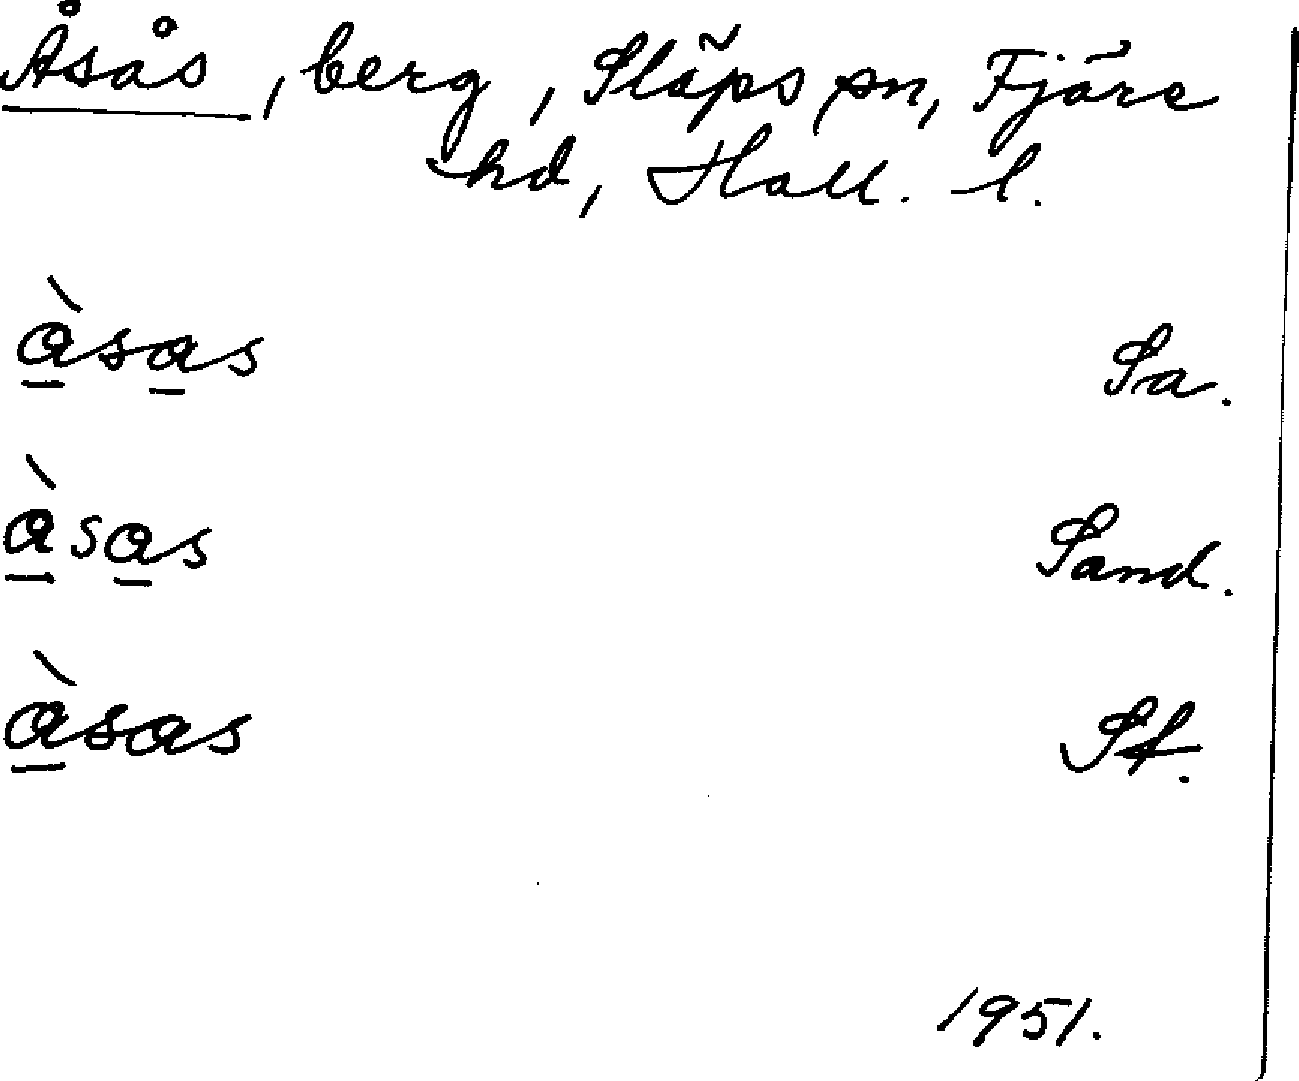 Åsås, berg, Släps sn, Fjäre
hd, Hall. l.
à̲sa̲s Sa.
à̲sa̲s Sand.
à̲sas St.
1951.